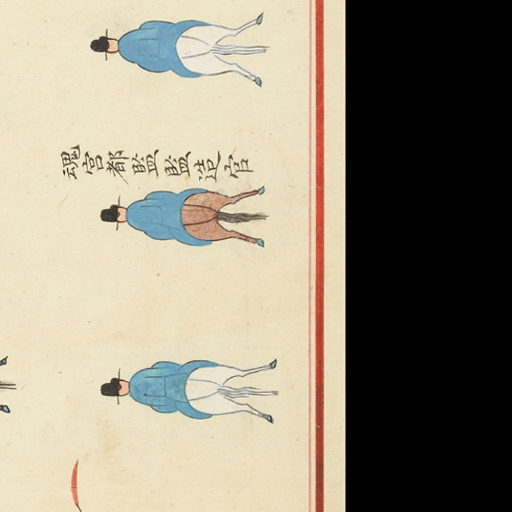 魂宮都監監造官